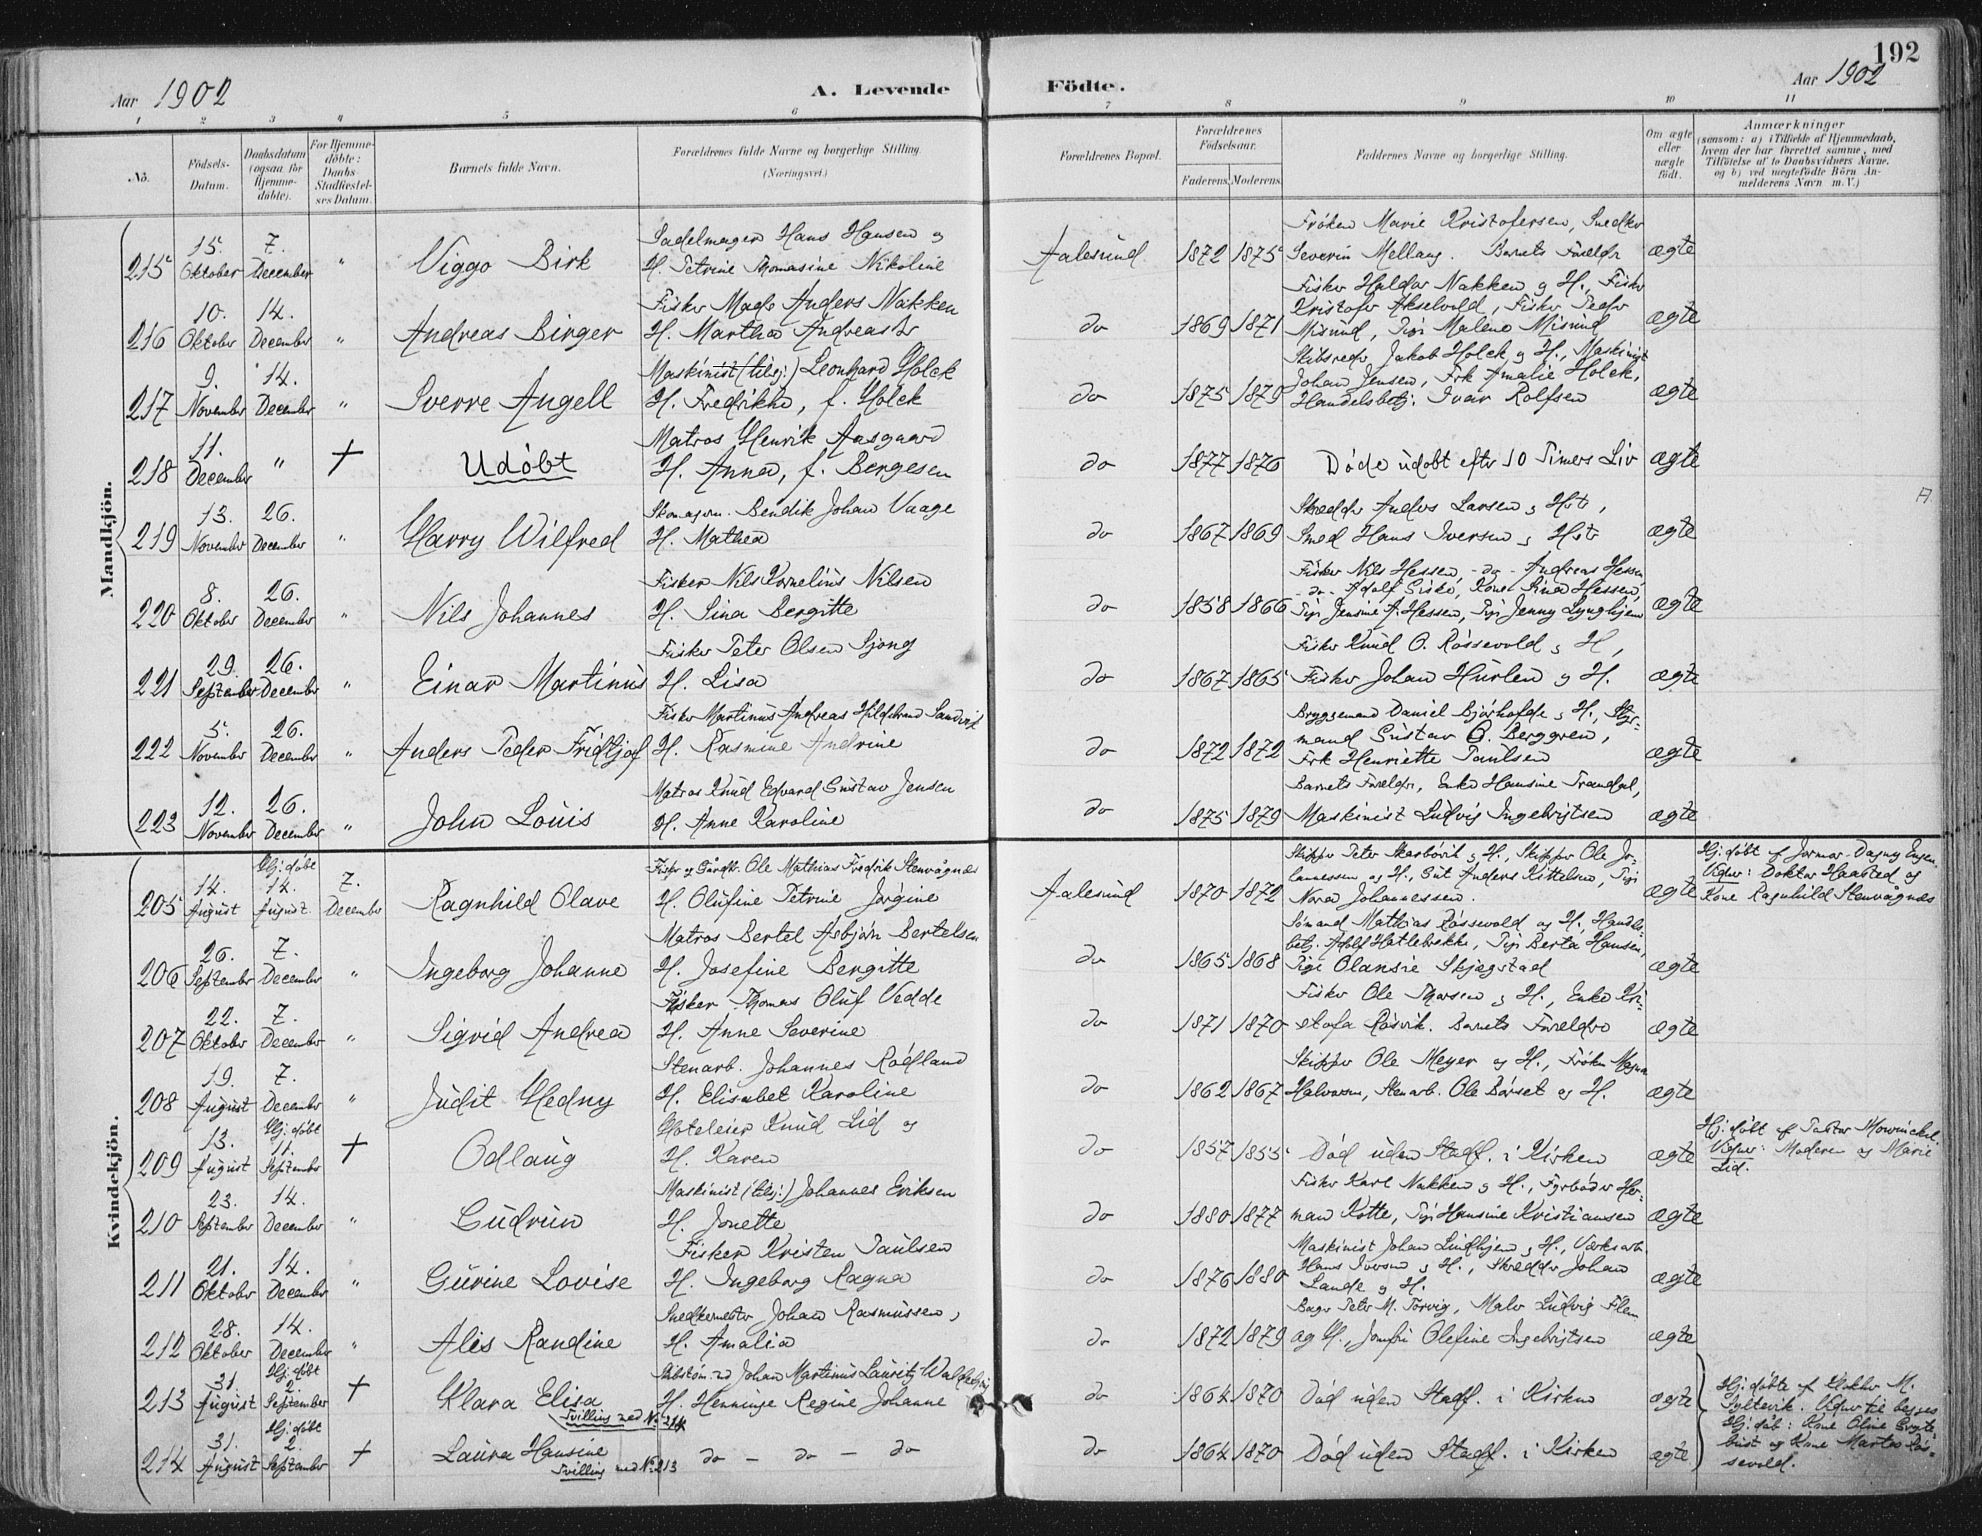 192
Aar 1902
A. Levende
Födte.
Aar 1902
1 2 3 4 5 6 7 8 9 10 11
No.
Födsels-Datum.
Daabsdatum (ogsaa for Hjemme-döbte).
For Hjemme-döbte: Daabs Stadfæstel-ses Datum.
Barnets fulde Navn.
Forældrenes fulde Navne og borgerlige Stilling.
(Næringsvei.)
Forældrenes Bopæl.
Forældrenes Födselsaar.
Faderens. Moderens.
Faddernes Navne og borgerlige Stilling.
Om ægte eller uægte födt.
Anmærkninger
(saasom: a) i Tilfælde af Hjemmedaab,
hvem der har forrettet samme, med
Tilföielse af to Daabsvidners Navne.
og b) ved uægtefödte Börn An-
melderens Navn m. V.)
Mandkjön.
215 15. Oktober 7. December " Viggo Birk
Sadelmager Hans Hansen og
H. Petrine Thomasine Nikoline
Aalesund 1872 1875
Fröken Marie Kristofersen, Snedker
Severin Mellang. Barnets Forældr ægte
216 10. Oktober 14. December " Andreas Birger
Fisker Mads Anders Nakken
H. Martha Andreasdr
do 1869 1871
Fisker Haldor Nakken og H., Fisker
Kristofer Akselvold, Fisker Peder
Misund, Pige Malene Misund ægte
217 9. November 14. December " Sverre Angell
Maskinist (tilsj:) Leonhard Holck
H. Fredrikke, f. Holck
do 1875 1879
Skibsredr Jakob Holck og H., Maskinist
Johan Jensen, Frk Amalie Holck,
Handelsbetj: Ivar Rolfsen ægte
218 11. December " + Udöbt
Matros Henrik Aasgaard
H. Anna, f. Bergesen
do 1877 1876 Döde udöbt efter 10 Timers Liv ægte
219 13. November 26. December " Harry Wilfred
Skomagerm. Bendik Johan Vaage
H. Mathea
do 1867 1869
Skredder Anders Larsen og Hstr,
Smed Hans Iversen og Hstr ægte
A
220 8. Oktober 26. December " Nils Johannes
Fisker Nils Kornelius Nilsen
H. Sina Bergitte
do 1858 1866
Fisker Nils Hessen, -do- Andreas Hessen
-do- Adolf Giske, Kone Rina Hessen,
Pige Jensine A. Hessen, Pige Jenny Lynghjem ægte
221 29. September 26. December " Einar Martinus
Fisker Peter Olsen Sjong
H. Lisa
do 1867 1865
Fisker Knud O. Rössevold og H,
Fisker Johan Hurlen og H. ægte
222 5. November 26. December " Anders Peder Fridtjof
Fisker Martinus Andreas Hildebrand Sandvik
H. Rasmine Andrine
do 1872 1872
Bryggemand Daniel Björhofde og H., Styr-
mand Gustav G. Berggren,
Frk Henriette Paulsen ægte
223 12. November 26. December " John Louis
Matros Knud Edvard Gustav Jensen
H. Anne Karoline
do 1875 1879
Barnets Forældr, Enke Hansine Trandal,
Maskinist Ludvig Ingebrigtsen ægte
Kvindekjön.
205 14. August Hj: döbt 14. August 7. December Ragnhild Olave
Fisker og Gårdbr. Ole Mathias Fredrik Stenvågnes
H. Olufine Petrine Jörgine
Aalesund 1870 1872
Skipper Peter Skarbövik og H., Skipper Ole Jo-
hannessen og H., Gut Anders Kittelsen, Pige
Nora Johannessen. ægte
Hj: döbt af Jormor Dagny Engen.
Vidner: Doktor Haasted og
Kone Ragnhild Stenvågnes
206 26. September 7. December " Ingeborg Johanne
Matros Bertel Asbjörn Bertelsen
H. Josefine Bergitte
do 1865 1868
Sömand Mathias Rössevold og H., Handels-
betj. Adolf Hatlebrekke, Pige Berta Hansen,
Pige Olansie Skjegstad ægte
207 22. Oktober 7. December " Sigrid Andrea
Fisker Thomas Oluf Vedde
H. Anne Severine
do 1871 1870
Fisker Ole Thorsen og H., Enke Kri-
stofa Rösvik. Barnets Forældre ægte
208 19. August 7. December " Judit Hedny
Stenarb. Johannes Rödland
H. Elisabet Karoline
do 1862 1867
Skipper Ole Meyer og H., Fröken Magna
Halvorsen, Stenarb. Ole Börset og H. ægte
209 13. August Hj: döbt 11. September + Odlaug
Hoteleier Knud Lid og
H. Karen
do 1857 1855 Död uden Stadf. i Kirken ægte
Hj: döbt af Pastor Mowinckel.
Vidner: Moderen og Marie
Lid.
210 23. September 14. December " Gudrun
Maskinist (tilsj:) Johannes Eriksen
H. Jonette
do 1880 1877
Fisker Karl Nakken og H., Fyrböder Her-
man Kotte, Pige Hansine Kristiansen ægte
211 21. Oktober 14. December " Gurine Lovise
Fisker Kristen Paulsen
H. Ingeborg Ragna
do 1876 1880
Maskinist Johan Lindhjem og H., Værksarb.
Hans Iversen og H., Skredder Johan
Lande og H. ægte
212 28. Oktober 14. December " Alis Randine
Snedkermester Johan Rasmussen,
H. Amalia
do 1872 1879
Bager Peter M. Törvig, Maler Ludvig Flem
og H., Jomfru Olefine Ingebrigtsen ægte
213 31. August Hj: döbt 2. September + Klara Elisa
Tvilling med No. 214
Johan Martinus Lauritz
H. Henninge Regine Johanne
do 1864 1870 Död uden Stadf. i Kirken ægte
214 31. August Hj: döbt 2. September + Laura Hansine
Tvilling med No. 213
do – do – do
do 1864 1870 Död uden Stadf. i Kirken ægte
Hj: döbte af Klokker M.
Syltevik. Vidner til begges
Hj: dåb: Kone Oline
og Kone Marta Rös-
sevold.